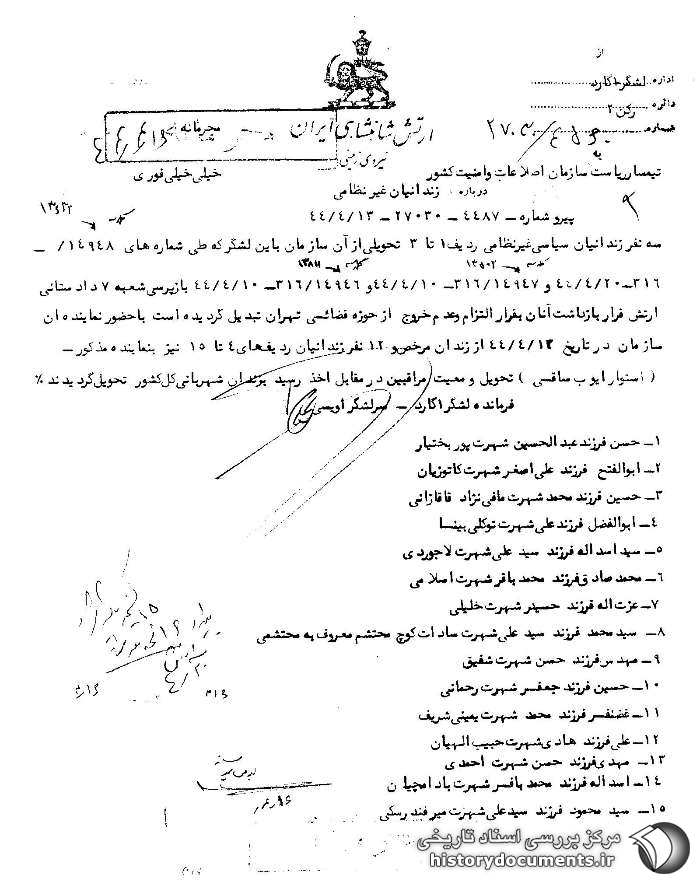 از
اداره لشگر ۱ گارد
دائره رکن ۲
شماره
ارتش شاهنشاهی ایران
نیروی زمینی
محرمانه
خیلی خیلی فوری
به
تیمسار ریاست سازمان اطلاعات و امنیت کشور
درباره : زندانیان غیر نظامی
پیرو شماره ــ ۴۴۸۷ ــ ۲۷۰۳۰ ــ ۴۴/۴/۱۳
سه نفر زندانیان سیاسی غیرنظامی ردیف ۱ تا ۳ تحویلی از آن سازمان باین لشگر که طی شماره های ۱۴۹۴۸/ ــ
۳۱۶ــ ۴۴/۴/۲۰ و ۳۱۶/۱۴۹۴۷ــ ۴۴/۴/۱۰ و ۳۱۶/۱۴۹۴۶ــ ۴۴/۴/۱۰ بازپرسی شعبه ۷ دادستانی
ارتش قرار بازداشت آنان بقرار التزام وعدم خروج از حوزه قضائی تهران تبدیل گردیده است باحضور نماینده ان
سازمان در تاریخ ۴۴/۴/۱۳ از زندان مرخص و ۱۲ نفر زندانیان ردیفهای ۴ تا ۱۵ نیز بنماینده مذکور ــ
( استوار ایوب ساقسی ) تحویل و معیت مراقبین در مقابل اخذ رسید بزندان شهربانی کل کشور تحویل گردیدند ٪
فرمانده لشگر ۱ گارد ــ سرلشگر اویسی
۱ــ حسن فرزند عبدالحسین شهرت پور بختیار
۲ــ ابوالفتح فرزند علی اصغر شهرت کاتوزیان
۳ــ حسین فرزند محمد شهرت مافی نژاد قاقازانی
۴ــ ابوالفضل فرزند علی شهرت توکلی بینسا
۵ــ سید اسد اله فرزند سید علی شهرت لاجوردی
۶ــ محمد صادق فرزند محمد باقر شهرت اسلامی
۷ــ عزت اله فرزند حسین شهرت خلیلی
۸ــ سید محمد فرزند سید علی شهرت سادات کوچ محتشم معروف به محتشمی
۹ــ مهدی فرزند حسن شهرت شفیق
۱۰ــ حسین فرزند جعفر شهرت رحمانی
۱۱ــ غضنفر فرزند محمد شهرت یمینی شریف
۱۲ــ علی فرزند هادی شهرت حبیب الهیان
۱۳ــ مهدی فرزند حسن شهرت احمدی
۱۴ــ اسد اله فرزند محمد باقر شهرت بادامچیان
۱۵ــ سید محمود فرزند سید علی شهرت میر فندرسکی
مرکز بررسی اسناد تاریخی
historydocuments.ir